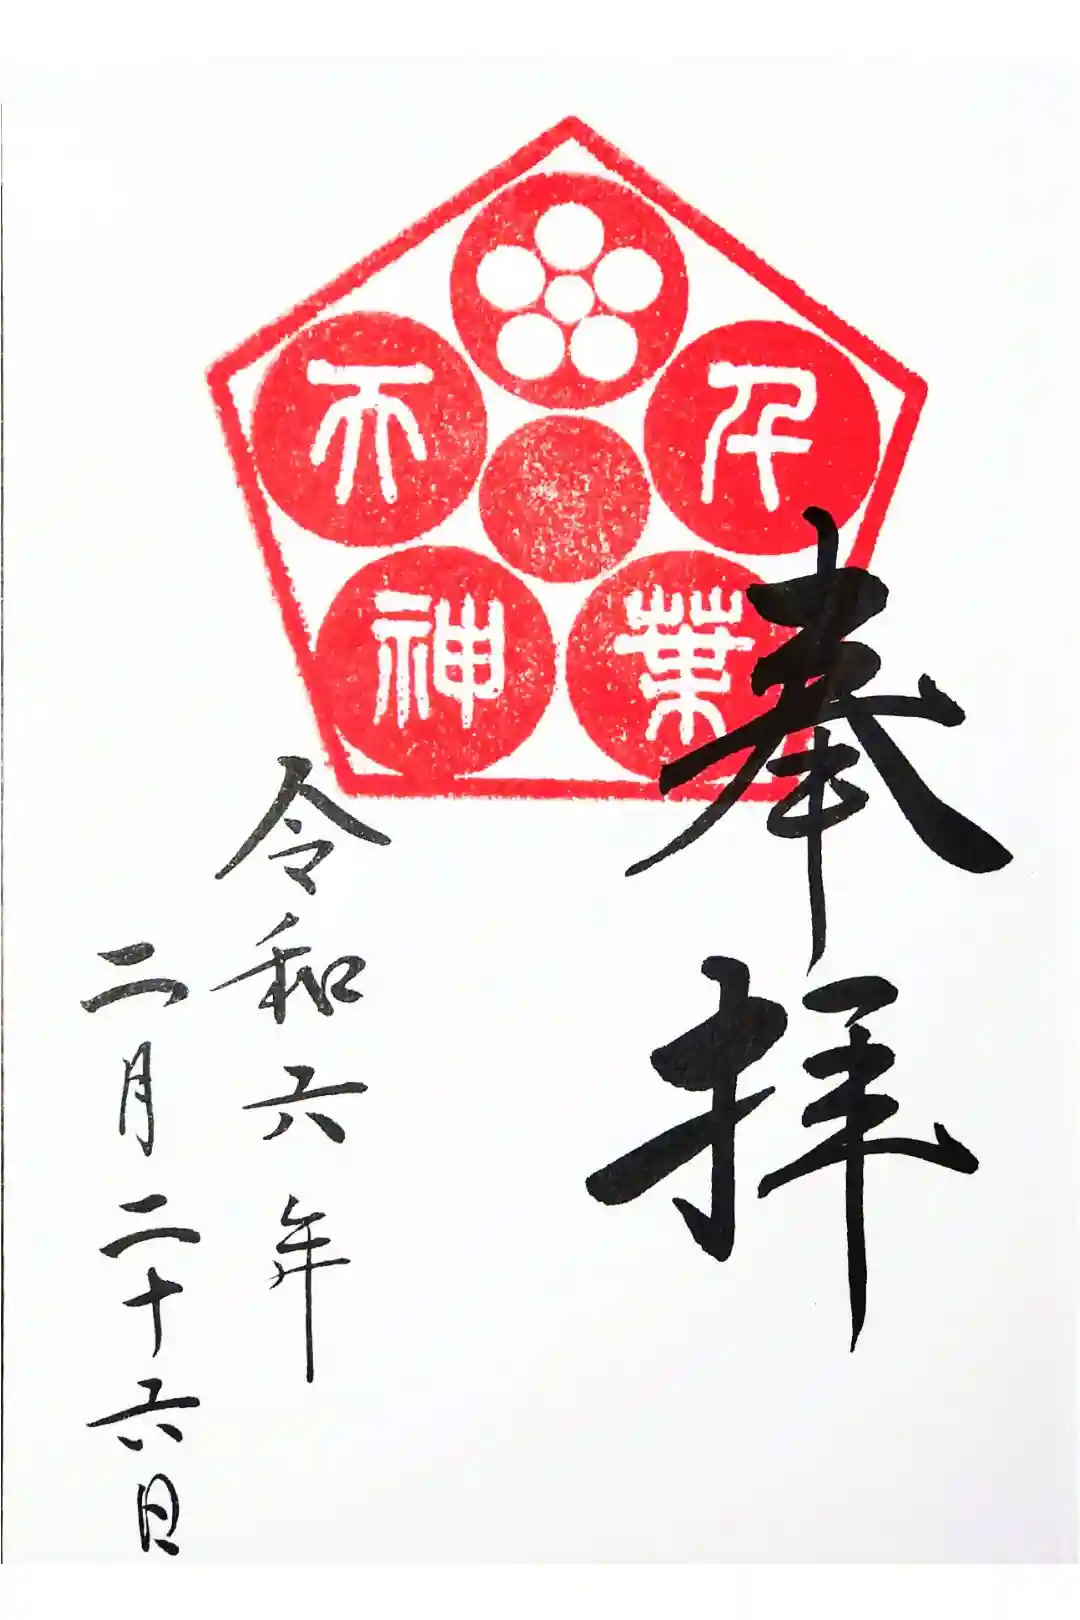 奉拝
千葉天神
令和六年
二月二十六日